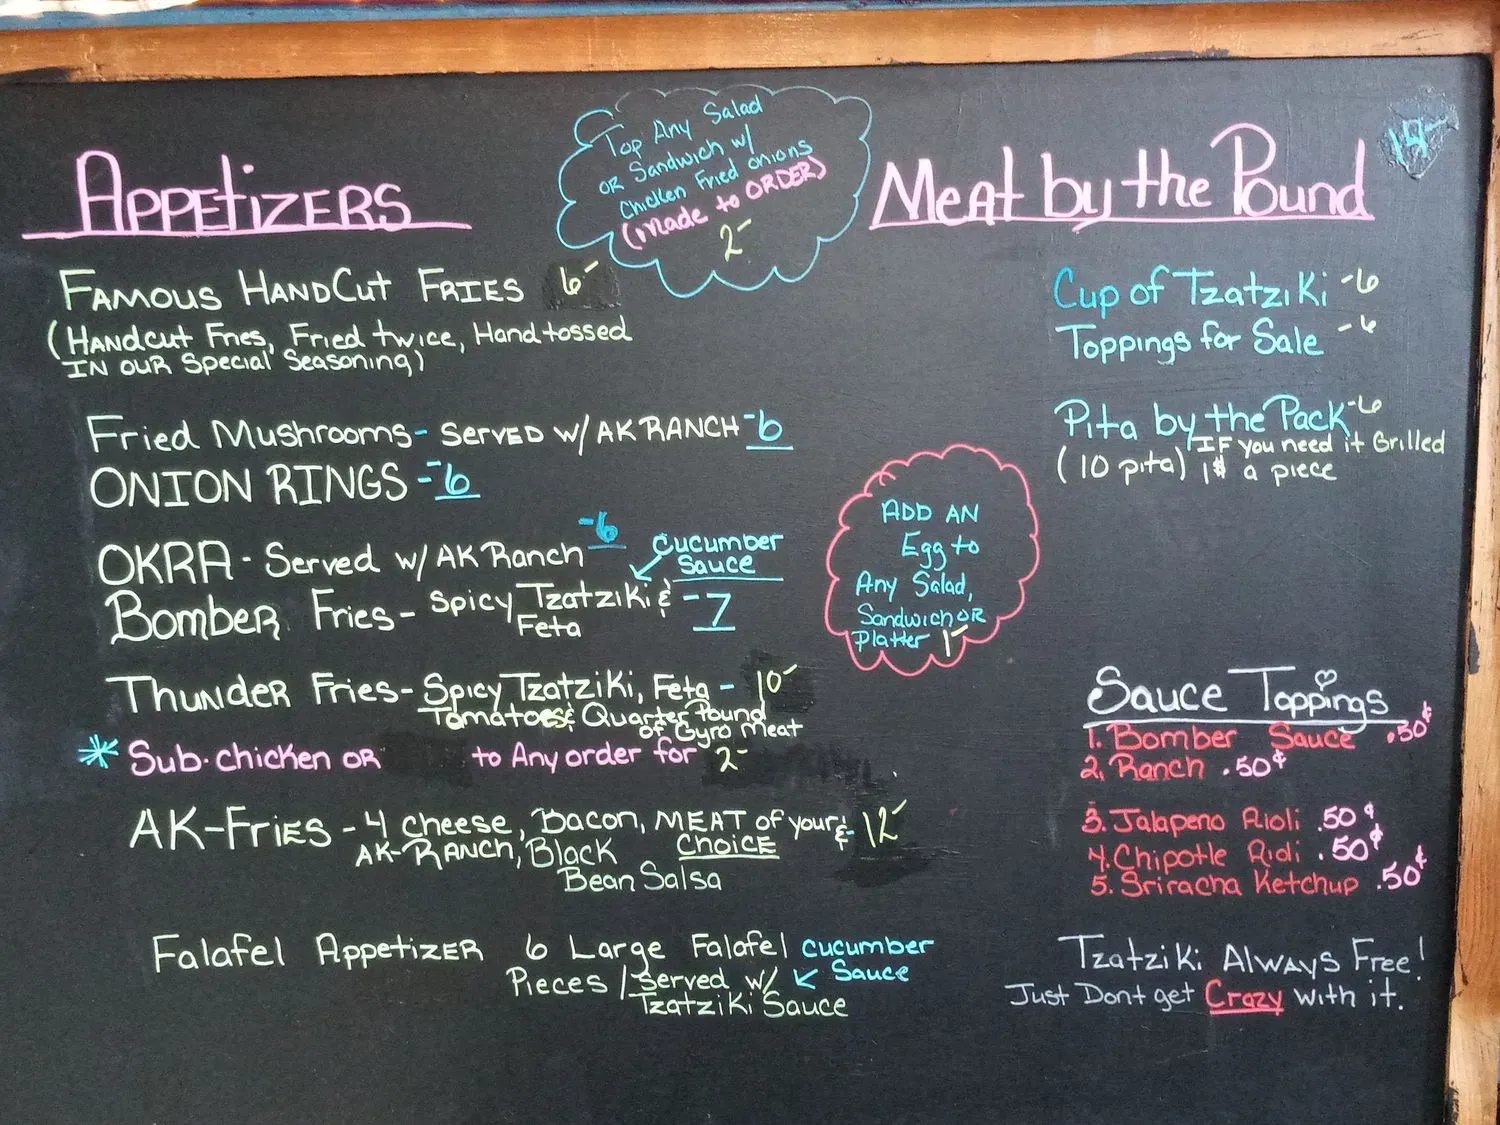 Appetizers
Famous HandCut Fries 6-
(Handcut Fries, Fried twice, Hand tossed
in our Special Seasoning)
Fried Mushrooms - Served w/ AK Ranch -6
Onion Rings -6
Okra - Served w/ AK Ranch -6
Cucumber
Sauce
Bomber Fries - Spicy Tzatziki & -7
Feta
Thunder Fries - Spicy Tzatziki, Feta - 10-
Tomatoes & Quarter Pound
of Gyro Meat
* Sub. chicken or to Any order for 2-
AK-Fries - 4 cheese, Bacon, Meat of your & - 12-
AK-Ranch, Black Choice
Bean Salsa
Falafel Appetizer 6 Large Falafel cucumber
Pieces / Served w/ Sauce
Tzatziki Sauce
Top Any Salad
or Sandwich w/
Chicken Fried onions
(made to order)
2-
Add an
Egg to
Any Salad,
Sandwich or
Platter 1-
Meat by the Pound
Cup of Tzatziki -6
Toppings for Sale -6
Pita by the Pack -6
If you need it Grilled
(10 pita) 1$ a piece
Sauce Toppings
1. Bomber Sauce .50¢
2. Ranch .50¢
3. Jalapeno Rioli .50¢
4. Chipotle Rioli .50¢
5. Sriracha Ketchup .50¢
Tzatziki Always Free!
Just Dont get Crazy with it.